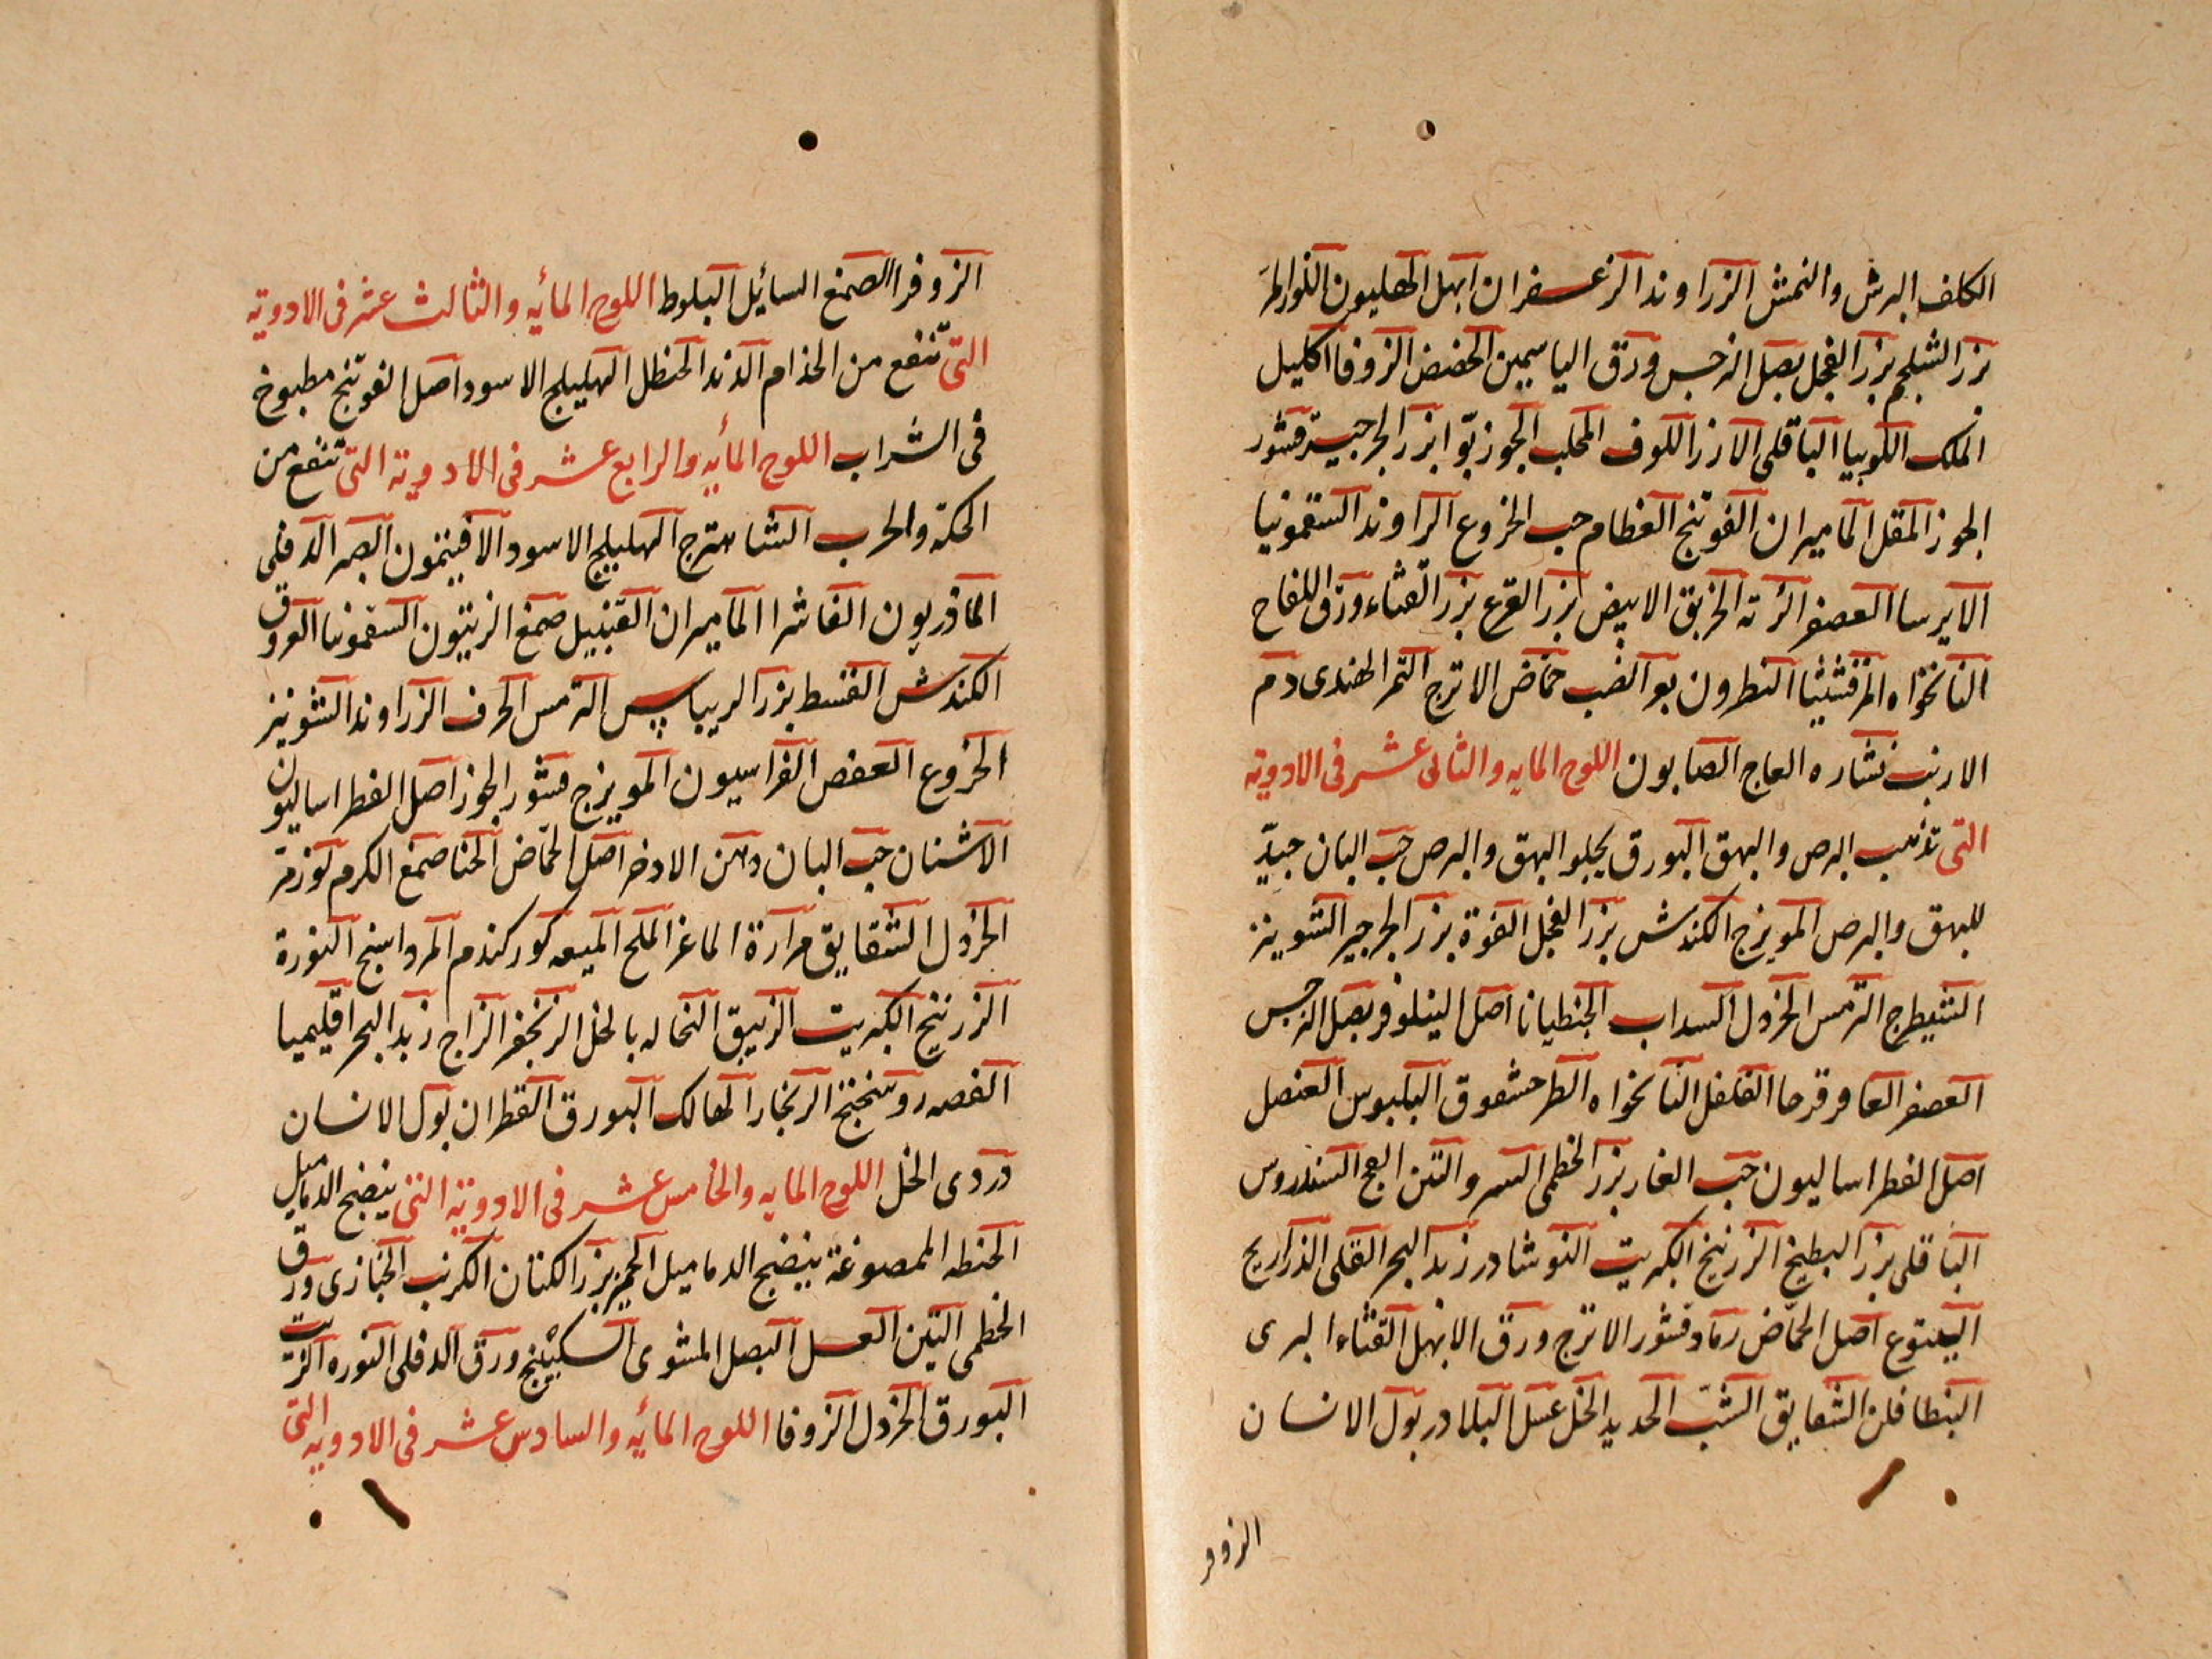 الكلف البرش والنمش الزراوند الزعفران ابهل الهليون
بزر الشلجم بزر الفجل بصل النرجس ورق الياسمين الحضض الزوفا اكليل
الملك اللوبيا الباقلى الارز اللوف المحلب الجوز بوا بزر الجرجير قشور
الجوز المقل الماميران الفوتنج العظام حب الخروع الراوند السقمونيا
الايرسا العصفر الرته الخربق الابيض بزر القرع بزر القثاء ورق اللفاح
النانخواه المرقشيثا النطرون بعر الضب حماض الاترج التمر الهندى دم
الارنب نشاره العاج الصابون اللوح المايه والثانى عشر فى الادوية
التى تذهب البرص والبهق البورق يجلو البهق والبرص حب البان جيد
للبهق والبرص المويزج الكندش بزر الفجل الفوة بزر الجرجير الشونيز
الشيطرج الترمس الخردل السداب الجنطيانا اصل النيلوفر بصل النرجس
العصفر العاقرقرحا الفلفل النانخواه الطرحشقوق البلبوس العنصل
اصل الفطراساليون حب الغار بزر الخطمى السرو التين البج السندروس
الباقلى بزر البطيخ الزرنيخ الكبريت النوشادر زبد البحر القلى الذراريح
اليتوع اصل الحماض رماد قشور الاترج ورق الابهل القثاء البرى
البنطافلن الشقايق الشب الحديد الخل عسل البلادر بول الانسان
الزوفر
الزوفرا الصمغ السائيل البلوط اللوح المأيه والثالث عشر فى الادوية
التى تنفع من الجذام الدند الحنظل الهليلج الاسود اصل الفوتنج مطبوخ
فى الشراب اللوح المأيه والرابع عشر فى الادوية التى تنفع من
الحكة والجرب الشاهترج الهليلج الاسود الافيثمون الصبر الدفلى
الماذريون الفاشرا الماميران القنبيل صمغ الزيتون السقمونيا العروق
الكندش القسط بزر الريباس الترمس الحرف الزراوند الشونيز
الخروع العفص الفراسيون المويزج قشور الجوز اصل الفطراساليون
الاشنان حب البان دهن الاذخر اصل الحماض الحنا صمغ الكرم لوز مر
الخردل الشقايق مرارة الماعز الملح الميعه كوركندم المرداسنج النورة
الزرنيخ الكبريت الزيبق النخاله بالخل الزنجفر الزاج زبد البحر اقليميا
الفضه روسختج الزنجار الهالك البورق القطران بول الانسان
دردى الخل اللوح المايه والخامس عشر فى الادوية التى ينضج الدماميل
الحنطه الممضوغة ينضج الدماميل الجميز بزر الكتان الكرنب الخبازى ورق
الخطمى التين العسل البصل المشوى السكبينج ورق الدفلى النوره الزيت
البورق الخردل الزوفا اللوح المأيه والسادس عشر فى الادويه التى